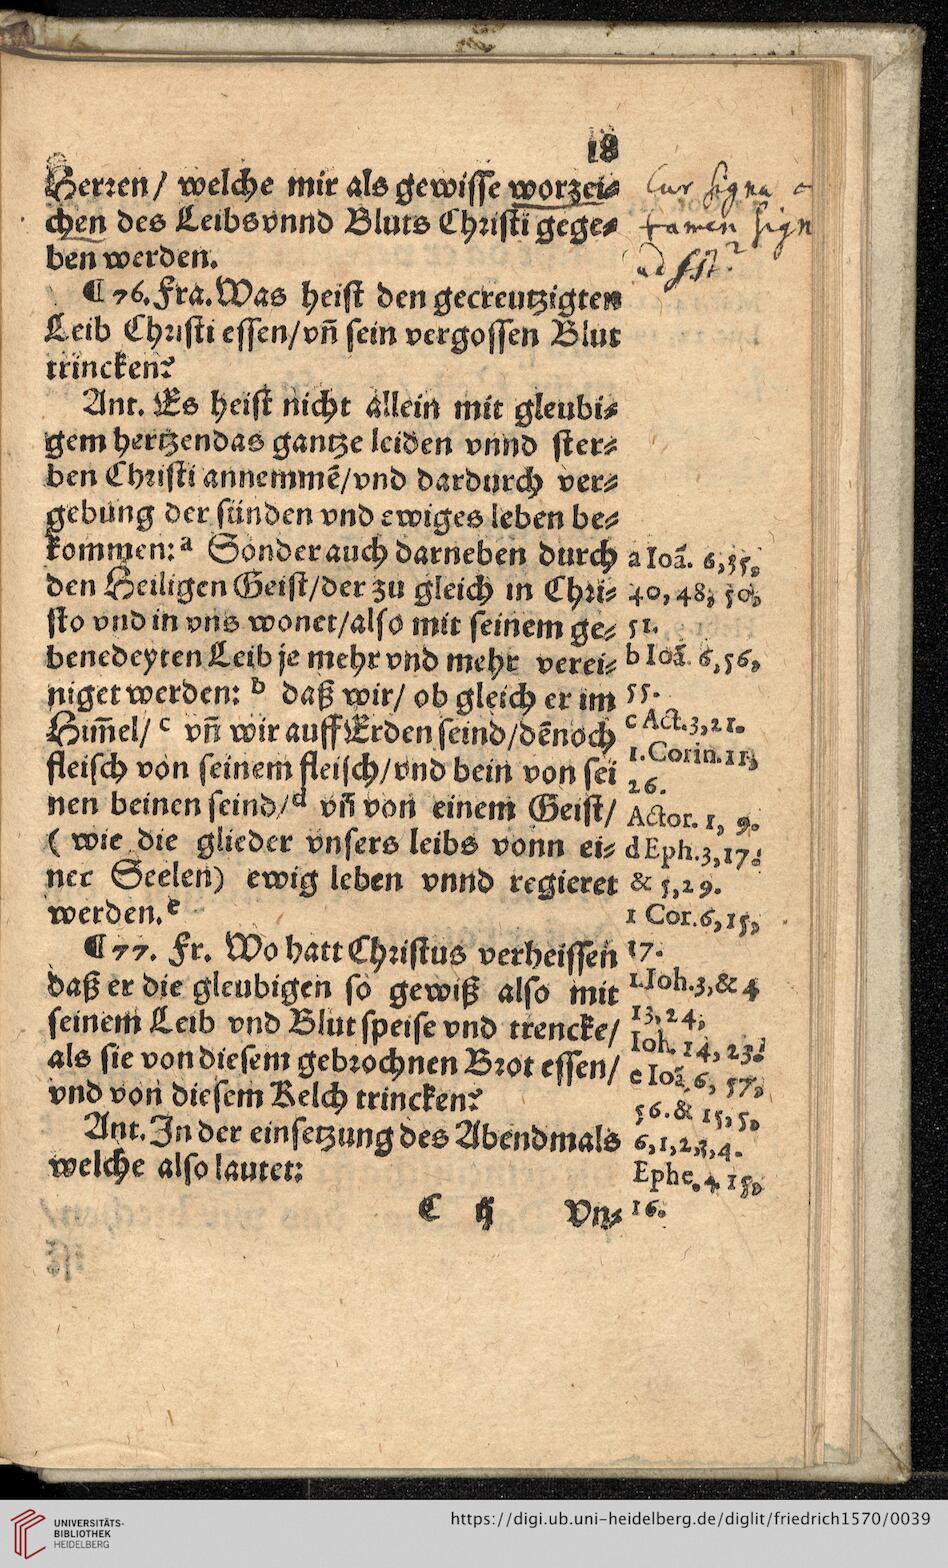 18
Herren/ welche mir als gewisse worzei⸗
chen des Leibs vnnd Bluts Christi gege⸗
ben werden.
¶ 76. Fra. Was heist den gecreutzigten
Leib Christi essen/ vñ sein vergossen Blut
trincken?
Ant. Es heist nicht allein mit gleubi⸗
gem hertzen das gantze leiden vnnd ster⸗
ben Christi annemmẽ/ vnd dardurch ver⸗
gebung der sünden vnd ewiges leben be⸗
kommen: a Sonder auch darneben durch
den Heiligen Geist/ der zu gleich in Chri⸗
sto vnd in vns wonet/ also mit seinem ge⸗
benedeyten Leib je mehr vnd mehr verei⸗
niget werden: b daß wir/ ob gleich er im
Him̃el/ c vñ wir auff Erden seind/ dẽnoch
fleisch von seinem fleisch/ vnd bein von sei
nen beinen seind/ d vñ von einem Geist/
( wie die glieder vnsers leibs vonn ei⸗
ner Seelen) ewig leben vnnd regieret
werden. e
¶ 77. Fr. Wo hatt Christus verheissen
daß er die gleubigen so gewiß also mit
seinem Leib vnd Blut speise vnd trencke/
als sie von diesem gebrochnen Brot essen/
vnd von diesem Kelch trincken?
Ant. In der einsetzung des Abendmals
welche also lautet:
C ij Vn⸗
Cur signa
tamen sign
a Ioã. 6,35,
40, 48, 50,
51.
b Ioã. 6,56,
55.
c Act. 3,21.
1. Corin. 11,
26.
Actor. 1, 9.
d Eph. 3,17.
& 5,29.
1 Cor. 6,15,
17.
1. Ioh. 3, & 4
13, 24,
Ioh. 14, 23.
e Ioã. 6, 57,
56. & 15, 5,
6,1,2,3,4.
Ephe. 4. 15,
16.
UNIVERSITÄTS-
BIBLIOTHEK
HEIDELBERG
https://digi.ub.uni-heidelberg.de/diglit/friedrich1570/0039